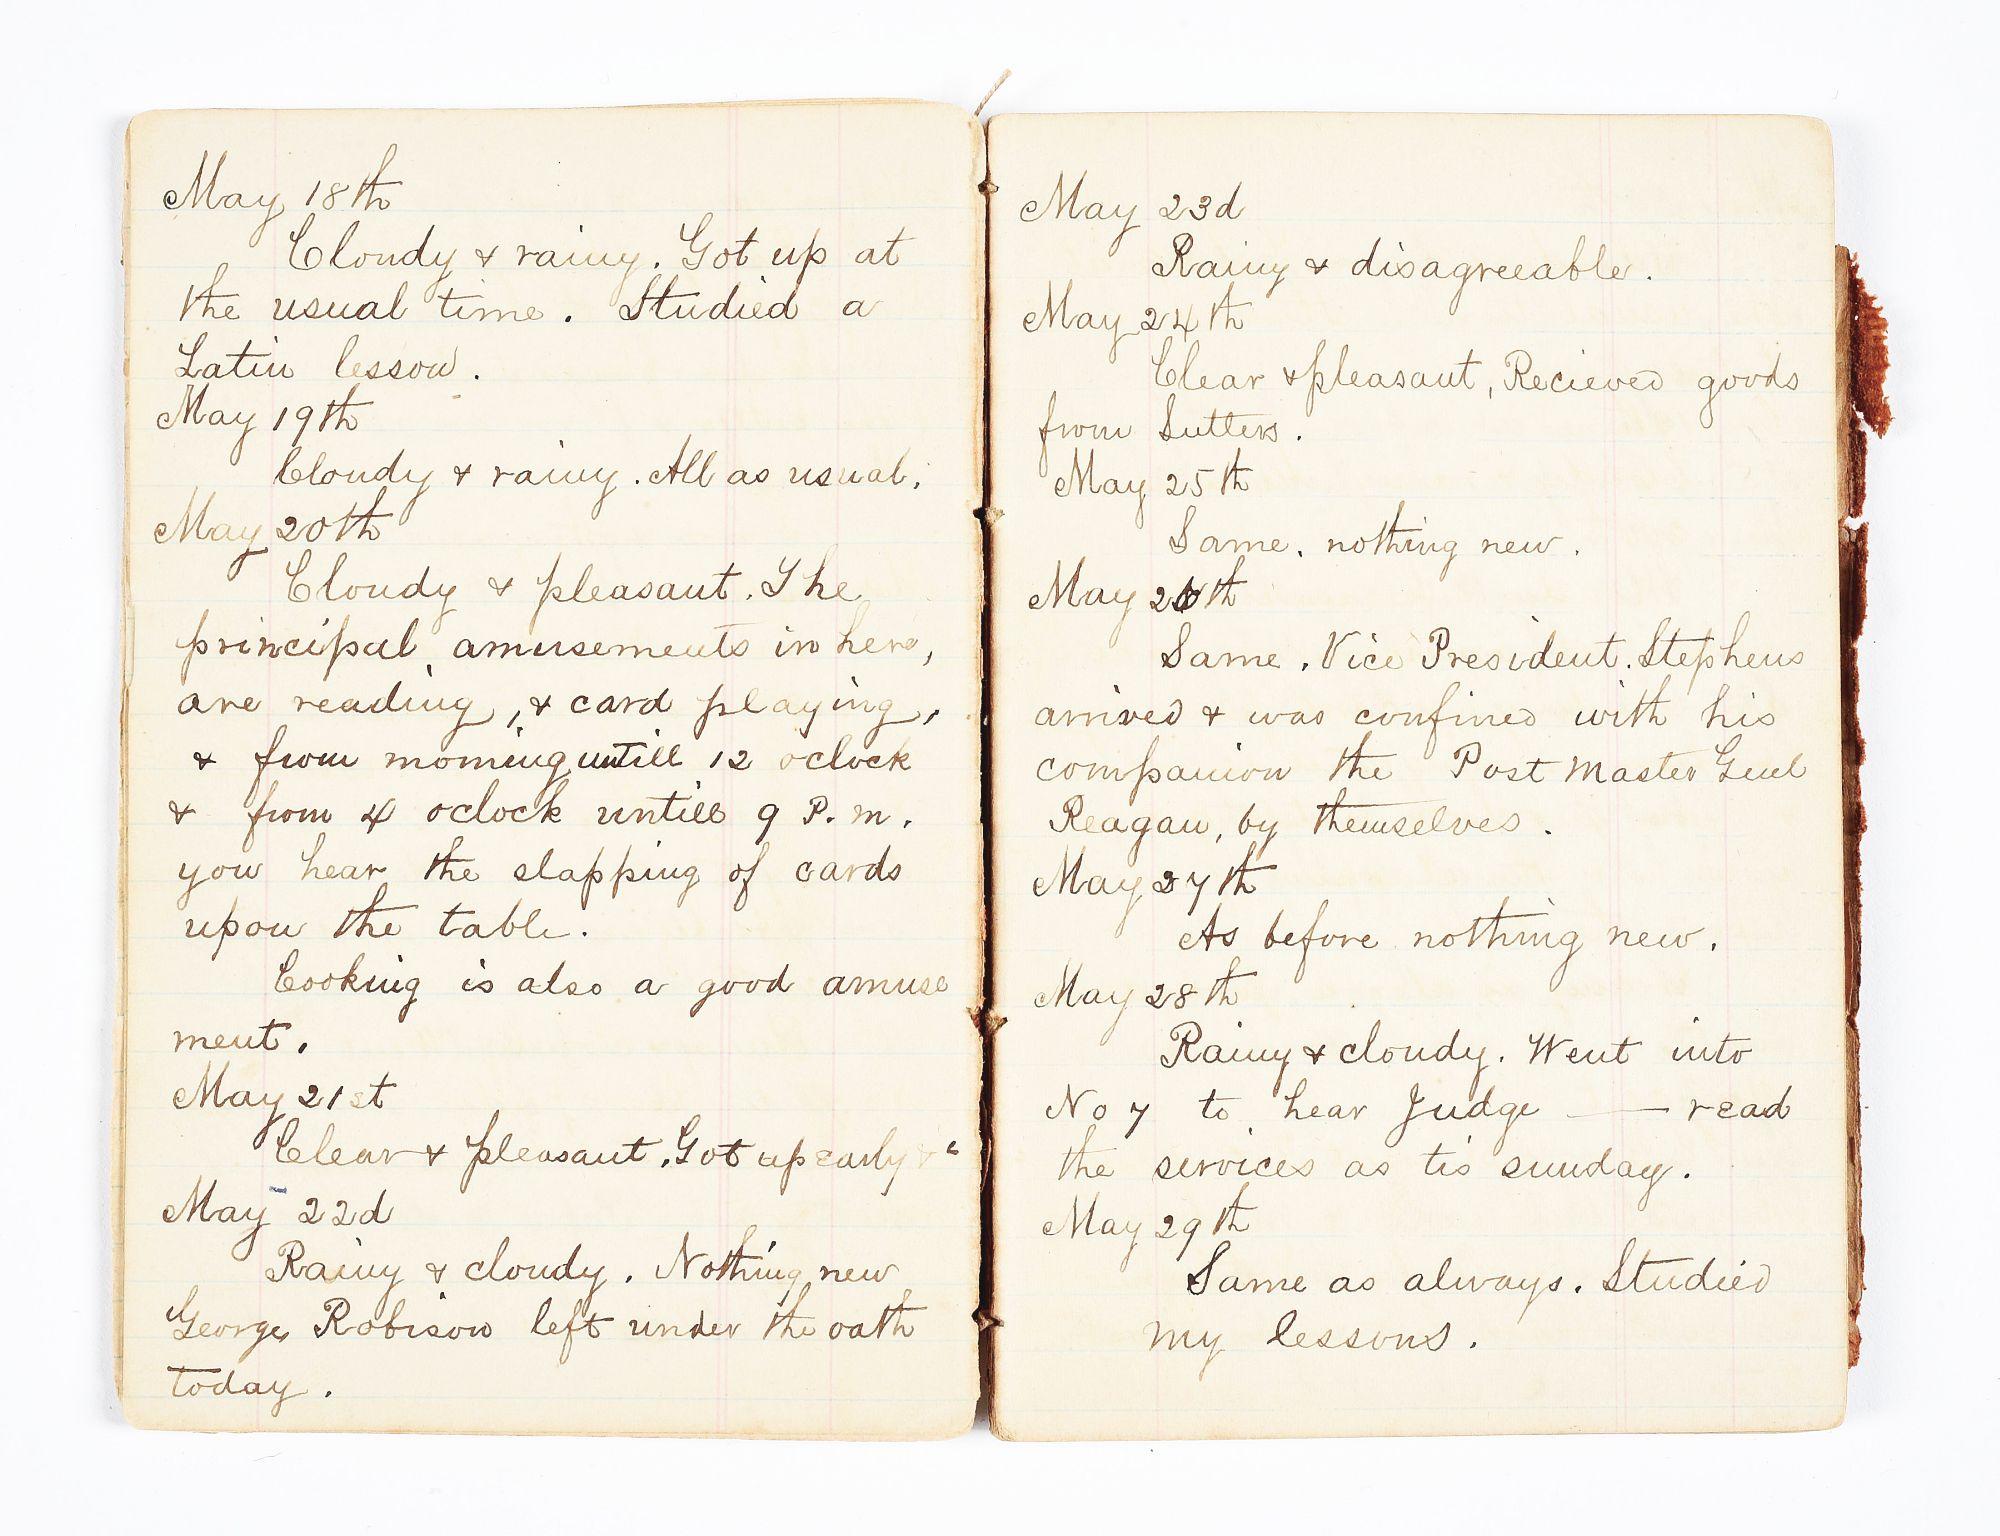 May 18th
Cloudy & rainy. Got up at
the usual time. Studied a
Latin lesson.
May 19th
Cloudy & rainy. All as usual.
May 20th
Cloudy & pleasant. The
principal amusements in here,
are reading, & card playing,
& from morning untill 12 oclock
& from 4 oclock untill 9 P.m.
you hear the slapping of cards
upon the table.
Cooking is also a good amuse
ment.
May 21st
Clear & pleasant. Got up early &c
May 22d
Rainy & cloudy. Nothing new
George Robison left under the oath
today.
May 23d
Rainy & disagreeable.
May 24th
Clear & pleasant, Recieved goods
from Sutlers.
May 25th
Same. nothing new.
May 26th
Same. Vice President. Stephens
arrived & was confined with his
companion the Post Master Genl
Reagan, by themselves.
May 27th
As before nothing new.
May 28th
Rainy & cloudy. Went into
No 7 to hear Judge —— read
the services as tis sunday.
May 29th
Same as always. Studied
my lessons.